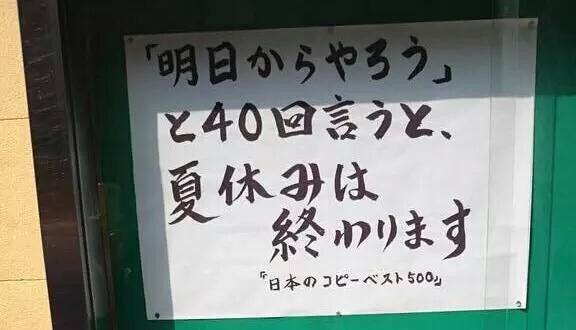 「明日からやろう」
と40回言うと、
夏休みは
終わります
「日本のコピーベスト500」